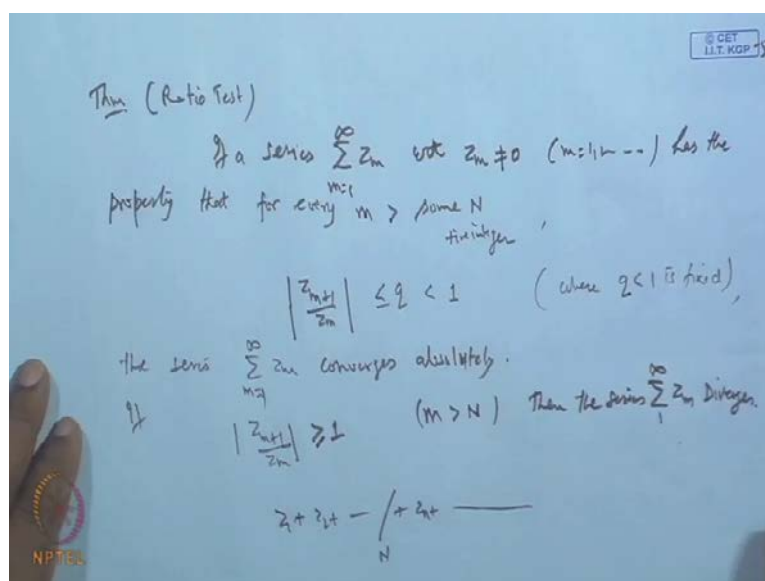 © CET
I.I.T. KGP
Thm (Ratio Test)
If a series ∑_{m=1}^{∞} z_m with z_m ≠ 0 (m=1,2,--) has the
property that for every m > some N
+ive integer,
|z_{m+1}/z_m| ≤ q < 1 (where q<1 is fixed),
the series ∑_{m=1}^{∞} z_m converges absolutely.
If |z_{m+1}/z_m| ≥ 1 (m > N) Then the series ∑_{1}^{∞} z_m Diverges.
z_1 + z_2 + — / + z_n + ——
N
NPTEL